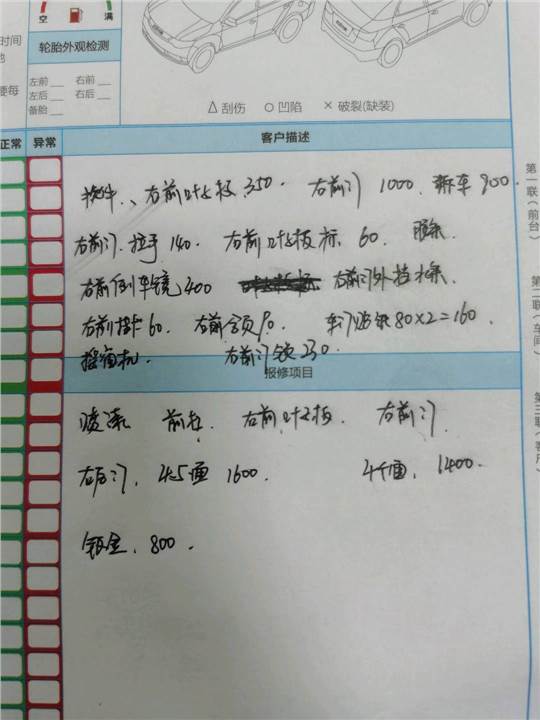 空 满
时间
轮胎外观检测
左前 右前
左后 右后
备胎
更每
△刮伤 ○凹陷 ×破裂(缺装)
正常 异常 客户描述
换件、右前叶子板350. 右前门1000. 轿车900.
右前门.拉手140. 右前叶子板标60. 胶条.
右前倒车镜400 右前门外挡水条
右前 60. 右前 50. 车门 80×2=160.
摇窗机. 右前门锁230.
报修项目
喷漆 前杠. 右前叶子板. 右前门.
右后门. 4.5面 1600. 4个面. 1400.
钣金. 800.
第一联(前台)
第二联(车间)
第三联(客户)